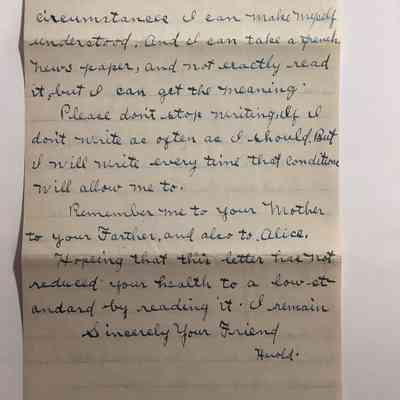 circumstances I can make myself
understood. And I can take a french
news paper, and not exactly read
it, but I can get the meaning.
Please don't stop writing, If I
don't write as often as I should. But
I will write every time that conditions
will allow me to.
Remember me to your Mother
to your Farther, and also to Alice.
Hopeing that this letter has not
reduced your health to a low-st-
andard by reading it. I remain
Sincerely Your Friend
Harold.